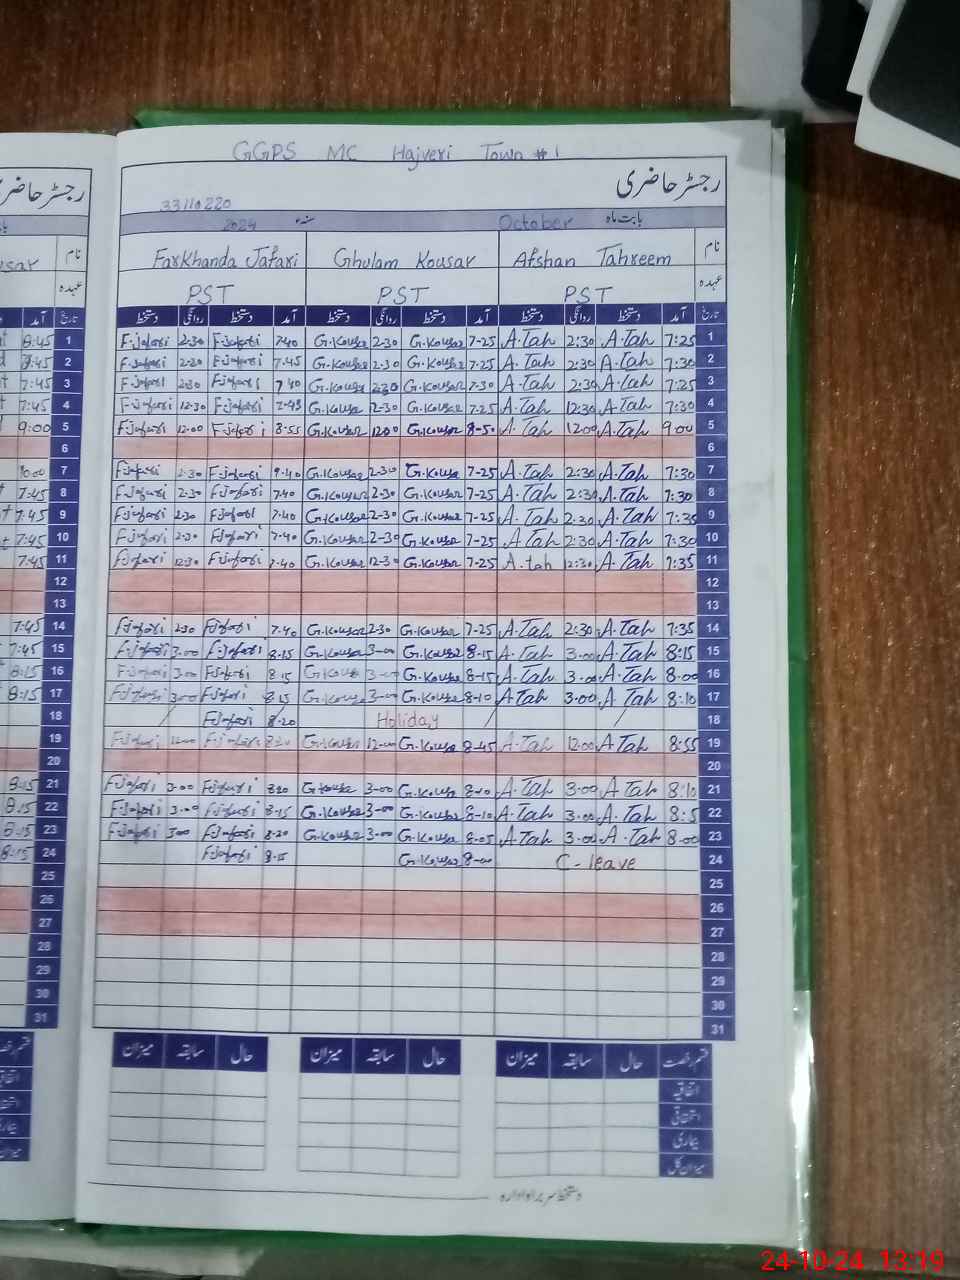 GGPS MC Hajveri Town #1
رجسٹر حاضری
33110220
بابت ماہ October سنہء 2024
نام Afshan Tahreem Ghulam Kousar Farkhanda Jafari
عہدہ PST PST PST
تاریخ آمد دستخط روانگی دستخط آمد دستخط روانگی دستخط آمد دستخط روانگی دستخط
1 7:25 A.Tah 2:30 A.Tah 7-25 G.Kousar 2-30 G.Kousar 7.40 F.jafari 2-30 F.jafari
2 7:30 A.Tah 2:30 A.Tah 7-25 G.Kousar 2-30 G.Kousar 7.45 F.jafari 2-30 F.jafari
3 7:25 A.Tah 2:30 A.Tah 7-30 G.Kousar 2-30 G.Kousar 7.40 F.jafari 2-30 F.jafari
4 7:30 A.Tah 12:30 A.Tah 7-25 G.Kousar 12-30 G.Kousar 7-45 F.jafari 12-30 F.jafari
5 9:00 A.Tah 12:00 A.Tah 8-50 G.Kousar 12-00 G.Kousar 8-55 F.jafari 12-00 F.jafari
6
7 7:30 A.Tah 2:30 A.Tah 7-25 G.Kousar 2-30 G.Kousar F.jafari 2-30 F.jafari
8 7:30 A.Tah 2:30 A.Tah 7-25 G.Kousar 2-30 G.Kousar 7.40 F.jafari 2-30 F.jafari
9 A.Tah 2:30 A.Tah 7-25 G.Kousar 2-30 G.Kousar 7.40 F.jafari 2-30 F.jafari
10 7:30 A.Tah 2:30 A.Tah 7-25 G.Kousar 2-30 G.Kousar 7.40 F.jafari 2-30 F.jafari
11 7:35 A.Tah 12:30 A.tah 7-25 G.Kousar 12-30 G.Kousar 7.40 F.jafari 12-30 F.jafari
12
13
14 7:35 A.Tah 2:30 A.Tah 7-25 G.Kousar 2-30 G.Kousar 7.40 F.jafari 2-30 F.jafari
15 8:15 A.Tah 3.00 A.Tah 8-15 G.Kousar 3-00 G.Kousar 8.15 F.jafari 3.00 F.jafari
16 8:00 A.Tah 3.00 A.Tah 8-15 G.Kousar 3-00 G.Kousar 8.15 F.jafari 3.00 F.jafari
17 8:10 A.Tah 3.00 A.Tah 8-10 G.Kousar 3-00 G.Kousar 8.15 F.jafari 3.00 F.jafari
18 Holiday 8-20 F.jafari
19 8:55 A.Tah 12:00 A.Tah 8-45 G.Kousar 12-00 G.Kousar F.jafari 12-00 F.jafari
20
21 8:10 A.Tah 3.00 A.Tah 8-10 G.Kousar 3-00 G.Kousar 8.20 F.jafari 3.00 F.jafari
22 8:5 A.Tah 3.00 A.Tah 8-10 G.Kousar 3-00 G.Kousar 8-15 F.jafari 3.00 F.jafari
23 8:00 A.Tah 3.00 A.Tah 8-05 G.Kousar 3-00 G.Kousar 8.20 F.jafari 3.00 F.jafari
24 C-leave 8-00 G.Kousar 8.15 F.jafari
25
26
27
28
29
30
31
قسم رخصت حال سابقہ میزان حال سابقہ میزان حال سابقہ میزان
اتفاقیہ
استحقاقی
بیماری
میزان کل
دستخط سربراہ ادارہ
24-10-24 13:19